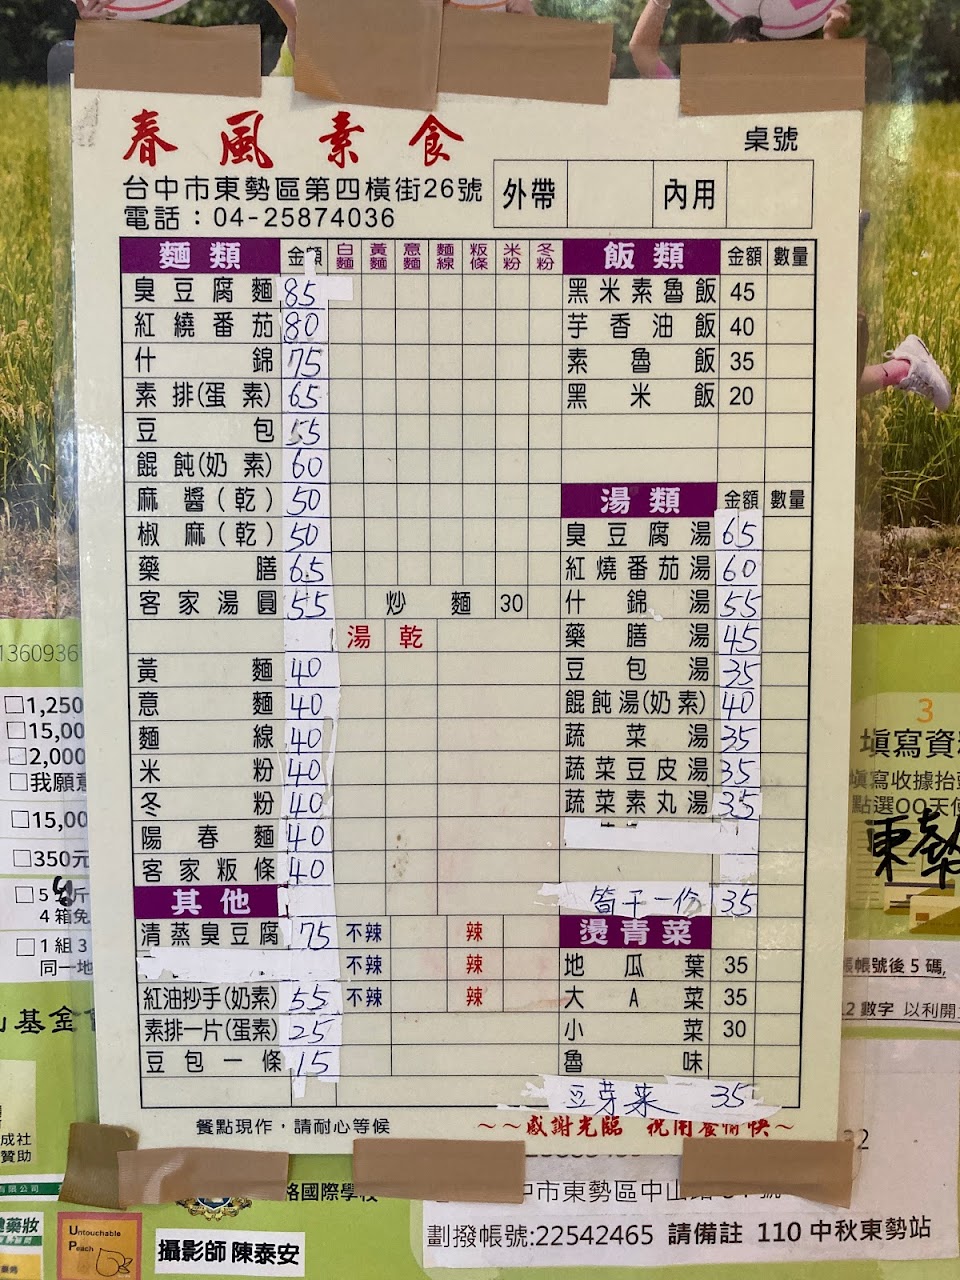 春風素食
桌號
台中市東勢區第四橫街26號
電話：04-25874036
外帶 內用
麵類 金額 白麵 黃麵 意麵 麵線 粄條 米粉 冬粉
臭豆腐麵 85
紅繞番茄 80
什錦 75
素排(蛋素) 65
豆包 55
餛飩(奶素) 60
麻醬(乾) 50
椒麻(乾) 50
藥膳 65
客家湯圓 55 炒麵 30
湯 乾
黃麵 40
意麵 40
麵線 40
米粉 40
冬粉 40
陽春麵 40
客家粄條 40
其他
清蒸臭豆腐 75 不辣 辣
不辣 辣
紅油抄手(奶素) 55 不辣 辣
素排一片(蛋素) 25
豆包一條 15
飯類 金額 數量
黑米素魯飯 45
芋香油飯 40
素魯飯 35
黑米飯 20
湯類 金額 數量
臭豆腐湯 65
紅燒番茄湯 60
什錦湯 55
藥膳湯 45
豆包湯 35
餛飩湯(奶素) 40
蔬菜湯 35
蔬菜豆皮湯 35
蔬菜素丸湯 35
筍干一份 35
燙青菜
地瓜葉 35
大A菜 35
小菜 30
魯味
豆芽菜 35
餐點現作，請耐心等候
～～感謝光臨 祝用餐愉快～
1360936
□1,250
□15,00
□2,000
□我願意
□15,00
□350元
4箱免
□1組3
同一地
基金
成社
贊助
3
填寫資料
填寫收據抬
點選QQ天使
東勢
帳號後5碼,
數字 以利開
國際學校
中市東勢區中山路
劃撥帳號:22542465 請備註 110 中秋東勢站
Untouchable
Peach
攝影師 陳泰安